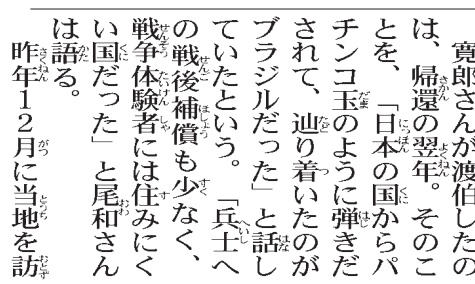 寛郎さんが渡伯したの
は、帰還の翌年。そのこ
とを、「日本の国からパ
チンコ玉のように弾きだ
されて、辿り着いたのが
ブラジルだった」と話し
ていたという。「兵士へ
の戦後補償も少なく、
戦争体験者には住みにく
い国だった」と尾和さん
は語る。
昨年12月に当地を訪